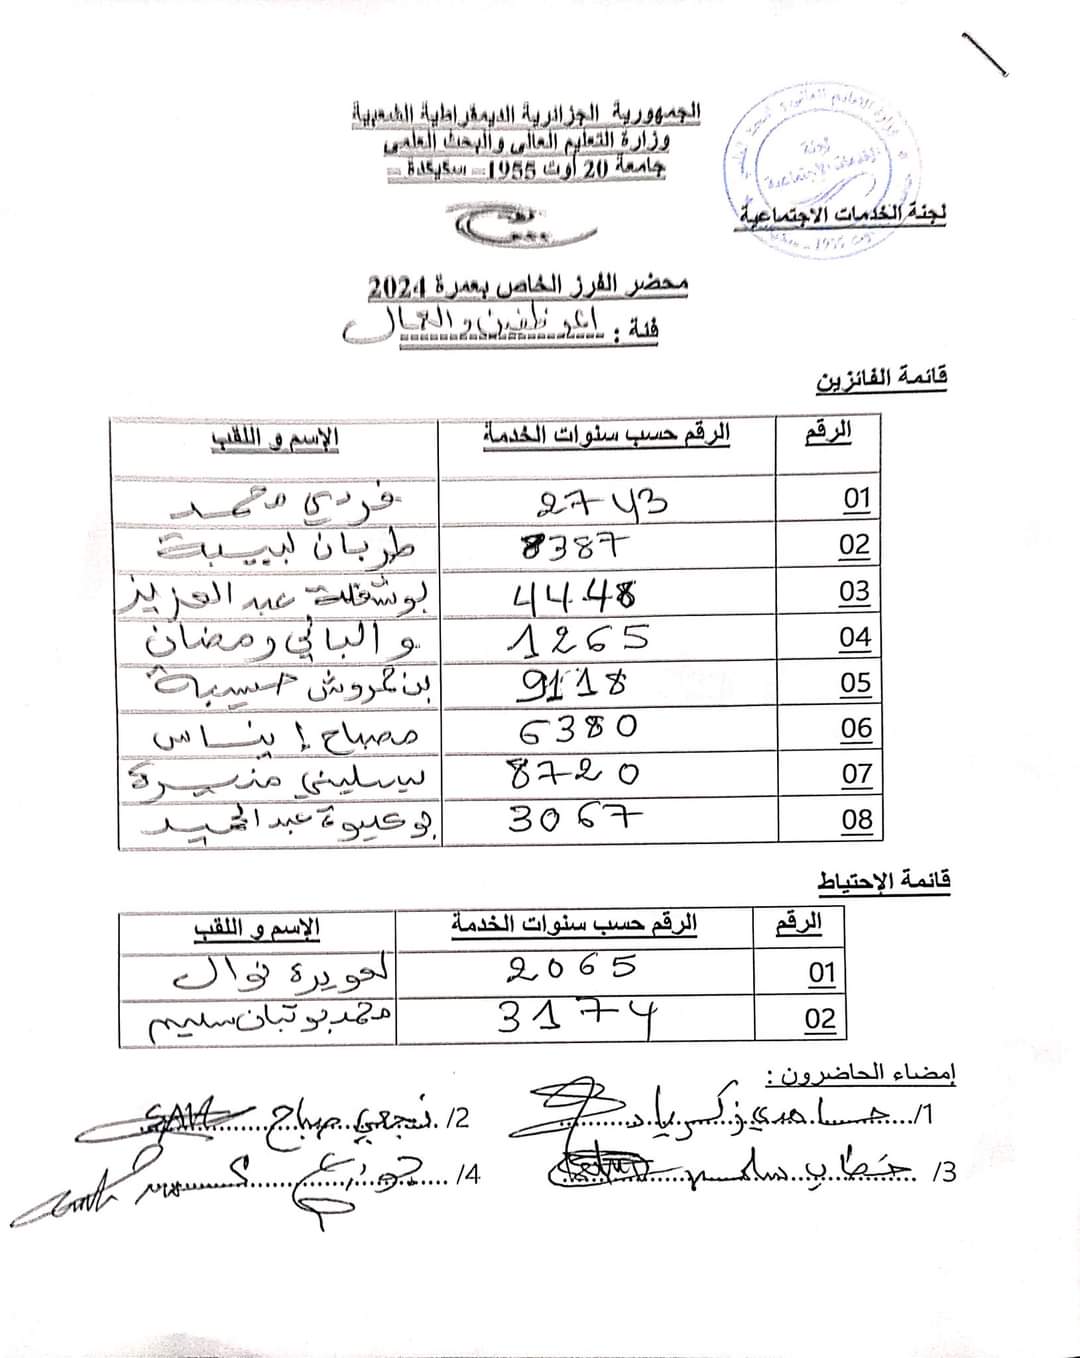 الجمهورية الجزائرية الديمقراطية الشعبية
وزارة التعليم العالي والبحث العلمي
جامعة 20 أوت 1955- سكيكدة -
لجنة الخدمات الاجتماعية
محضر الفرز الخاص بعمرة 2024
فئة : الموظفين والعمال
قائمة الفائزين
الرقم الرقم حسب سنوات الخدمة الإسم و اللقب
01 2743 فردي محمد
02 8387 طربان لبيبة
03 4448 بوشقلة عبد العزيز
04 1265 والبالي رمضان
05 9118 بن حسيبة
06 6380 مصباح إيناس
07 8720 منيرة
08 3067 بوعيوة عبد الحميد
قائمة الإحتياط
الرقم الرقم حسب سنوات الخدمة الإسم و اللقب
01 2065 لعويرة نوال
02 3174 محمد بوتبان سليم
إمضاء الحاضرون :
1/ زكرياء
2/ صباح
3/ حطاب
4/